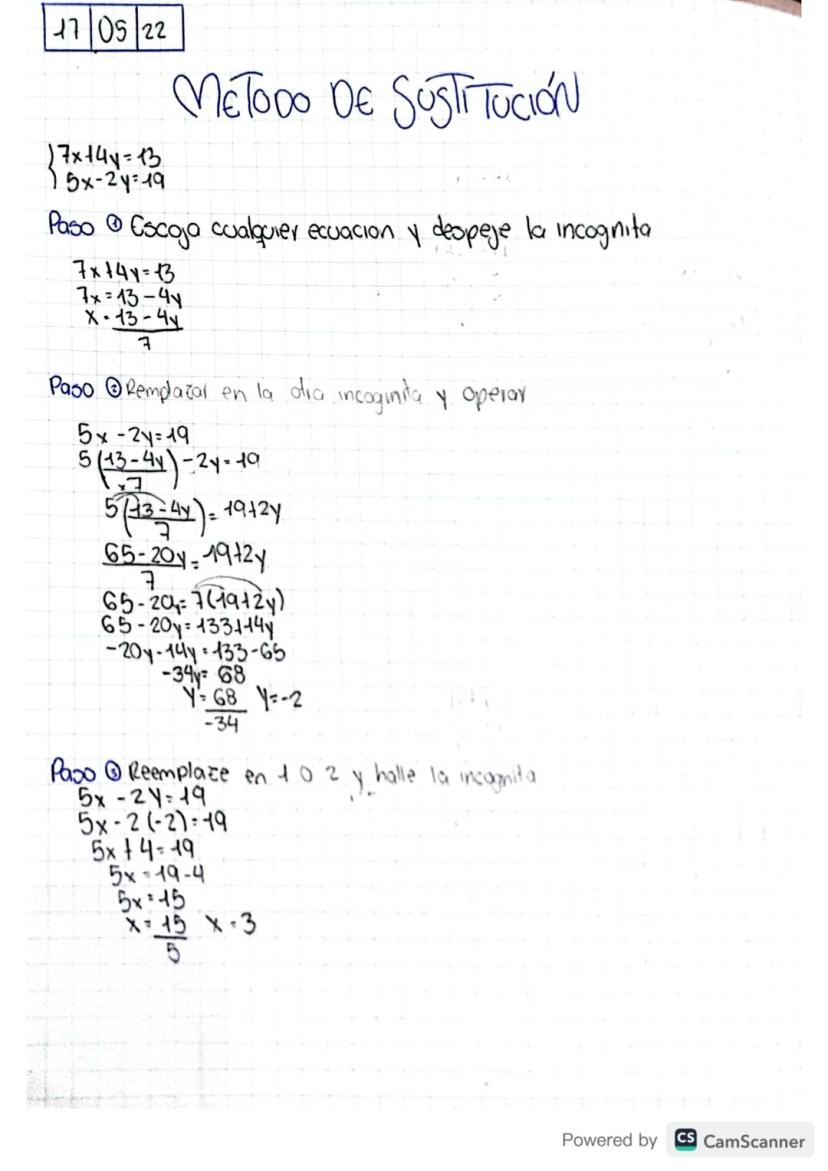 17 05 22
METODO DE SUSTITUCIÓN
7x+4y=13
5x-2y=19
Paso ① Escoja cualquier ecuacion y despeje la incognita
7x+4y=13
7x=13-4y
x=13-4y
7
Paso ② Remplazar en la otra incognita y operar
5x-2y=19
5(13-4y)-2y=19
7
5(13-4y)=19+2y
7
65-20y=19+2y
7
65-20y=7(19+2y)
65-20y=133+14y
-20y-14y=133-65
-34y=68
y=68 y=-2
-34
Paso ③ Reemplaze en 1 o 2 y halle la incognita
5x-2y=19
5x-2(-2)=19
5x+4=19
5x=19-4
5x=15
x=15 x=3
5
Powered by CS CamScanner